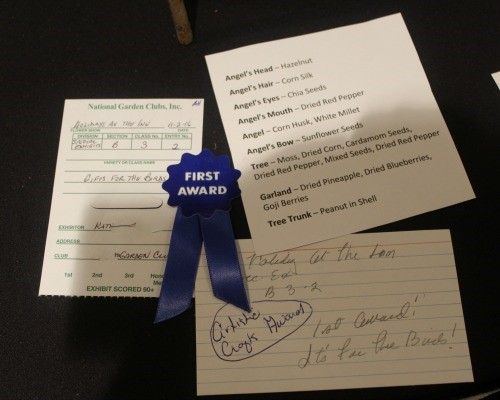 National Garden Clubs, Inc.
FLOWER SHOW
DATE
DIVISION SECTION CLASS No. ENTRY No.
B 3 2
VARIETY OR CLASS NAME
Gifts For the Birds
EXHIBITOR
ADDRESS
CLUB Garden
1st 2nd 3rd
EXHIBIT SCORED 90+
FIRST
AWARD
Angel's Head – Hazelnut
Angel's Hair – Corn Silk
Angel's Eyes – Chia Seeds
Angel's Mouth – Dried Red Pepper
Angel – Corn Husk, White Millet
Angel's Bow – Sunflower Seeds
Tree – Moss, Dried Corn, Cardamom Seeds,
Dried Red Pepper, Mixed Seeds, Dried Red Pepper
Garland – Dried Pineapple, Dried Blueberries,
Goji Berries
Tree Trunk – Peanut in Shell
Holiday At the Inn
B 3-2
Artistic
Crafts Award
1st Award!
It's For the Birds!